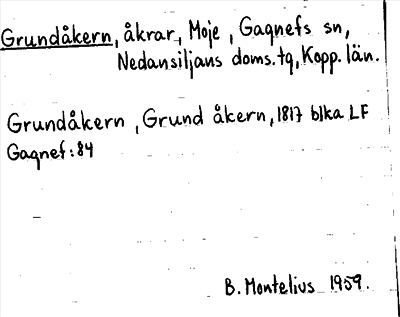 Grundåkern, åkrar, Moje, Gagnefs sn,
Nedansiljans doms. tg, Kopp. län.
Grundåkern, Grund åkern, 1817 blka LF
Gagnef: 84
B. Montelius 1959.